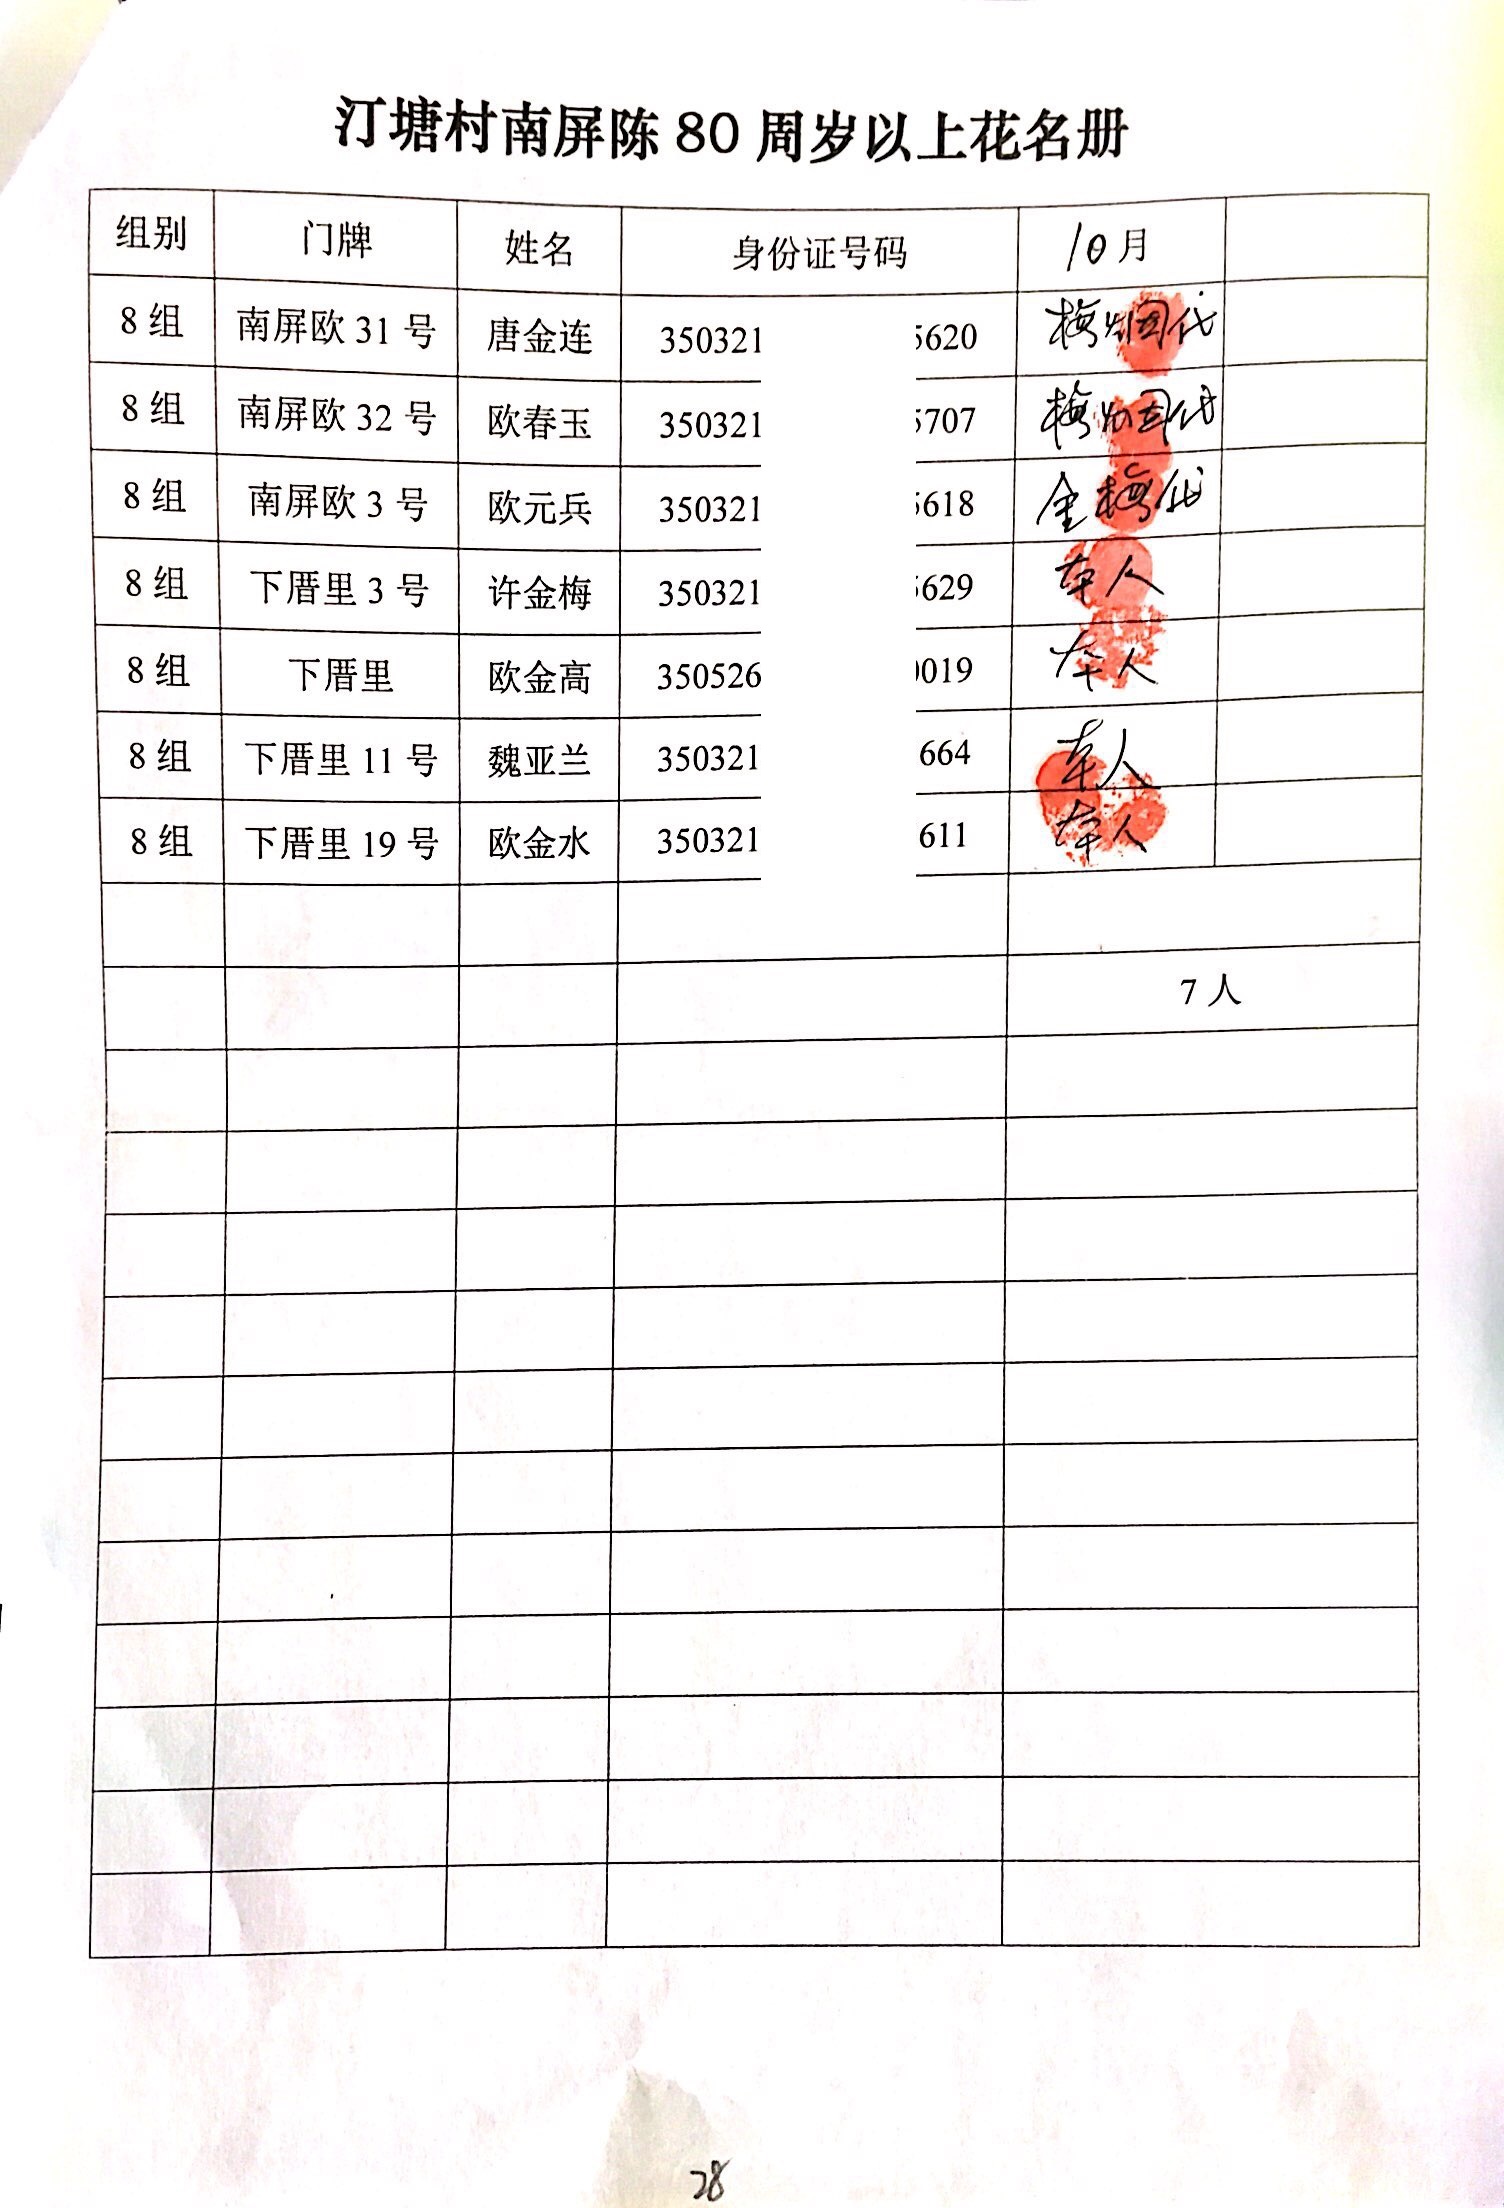 汀塘村南屏陈80周岁以上花名册
组别 门牌 姓名 身份证号码 10月
8组 南屏欧31号 唐金连 350321 5620
8组 南屏欧32号 欧春玉 350321 5707
8组 南屏欧3号 欧元兵 350321 5618 金梅代
8组 下厝里3号 许金梅 350321 5629 本人
8组 下厝里 欧金高 350526 0019 本人
8组 下厝里11号 魏亚兰 350321 664 本人
8组 下厝里19号 欧金水 350321 611 本人
7人
28